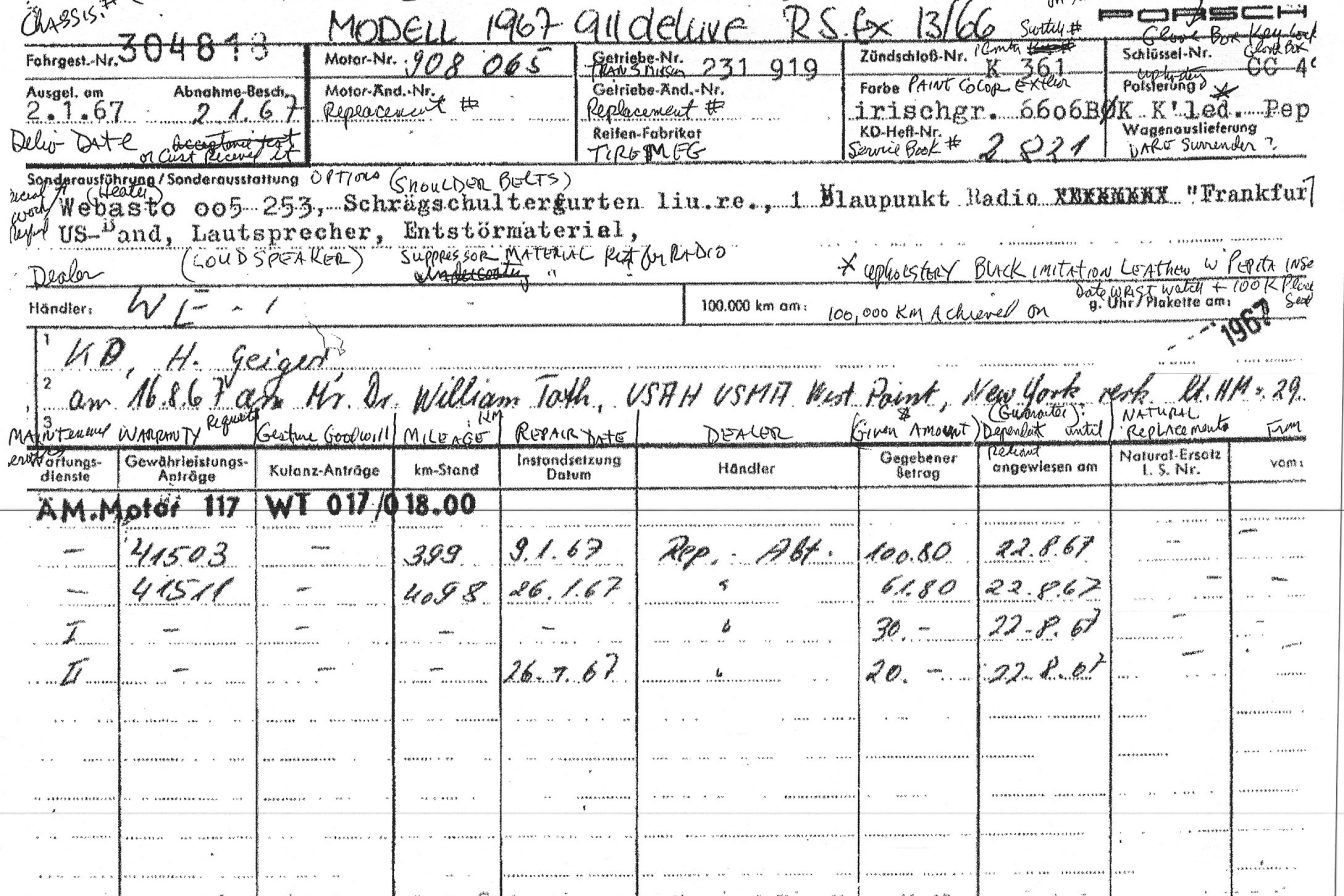 CHASSIS # MODELL 1967 911 deluxe R.S. Ex 13/66 PORSCH
Fahrgest.-Nr. 304813 Motor-Nr. 908 065 Getriebe-Nr. TRANSMISSION 231 919 Zündschloß-Nr. Switch # K 361 Schlüssel-Nr. Glove Box Key Lock Glove Box CC 4
Ausgel. am Abnahme-Besch. Motor-Änd.-Nr. Getriebe-Änd.-Nr. Farbe PAINT COLOR EXTER Polsterung *
2.1.67 2 1.67 Replacement # Replacement # irischgr. 6606B K K'led. Pep
Deliv DATE acceptance test or Cust Received it Reifen-Fabrikat KD-Heft-Nr. Wagenauslieferung
TIRE MFG Service Book # 2821 Surrender ?
Sonderausführung / Sonderausstattung OPTIONS (SHOULDER BELTS)
(Heater)
Webasto oo5 253, Schrägschultergurten liu.re., 1 Blaupunkt Radio XXXXXXXX "Frankfur
US-Band, Lautsprecher, Entstörmaterial,
(LOUDSPEAKER) SUPPRESSOR MATERIAL for RADIO
Dealer undercoating " * UPHOLSTERY BLACK IMITATION LEATHER W PEPITA INSE
Date WRIST WATCH + 100K
Händler: 100.000 km am: 100,000 KM Achieved on g. Uhr/Plakette am:
1967
1 KD, H. Geiger,
2 am 16.8.67 an Mr. Dr. William Toth, USAH USMA West Point, New York verk. lt. AM. 29.
3
MAINTENANCE WARRANTY Requests Gesture Goodwill MILEAGE KM REPAIR DATE DEALER (Given $ Amount) (Guarantee) Dependent until NATURAL Replacements From
Wartungs-dienste Gewährleistungs-Anträge Kulanz-Anträge km-Stand Instandsetzung Datum Händler Gegebener Betrag angewiesen am Natural-Ersatz I. S. Nr. vom:
ÄM.Motor 117 WT 017/018.00
– 41503 – 399 9.1.67 Rep. - Abt. 100.80 22.8.67 – –
– 41511 – 4098 26.1.67 " 61.80 22.8.67 – –
I – – – – " 30.- 22.8.67 – –
II – – 26.7.67 " 20.- 22.8.67 – –